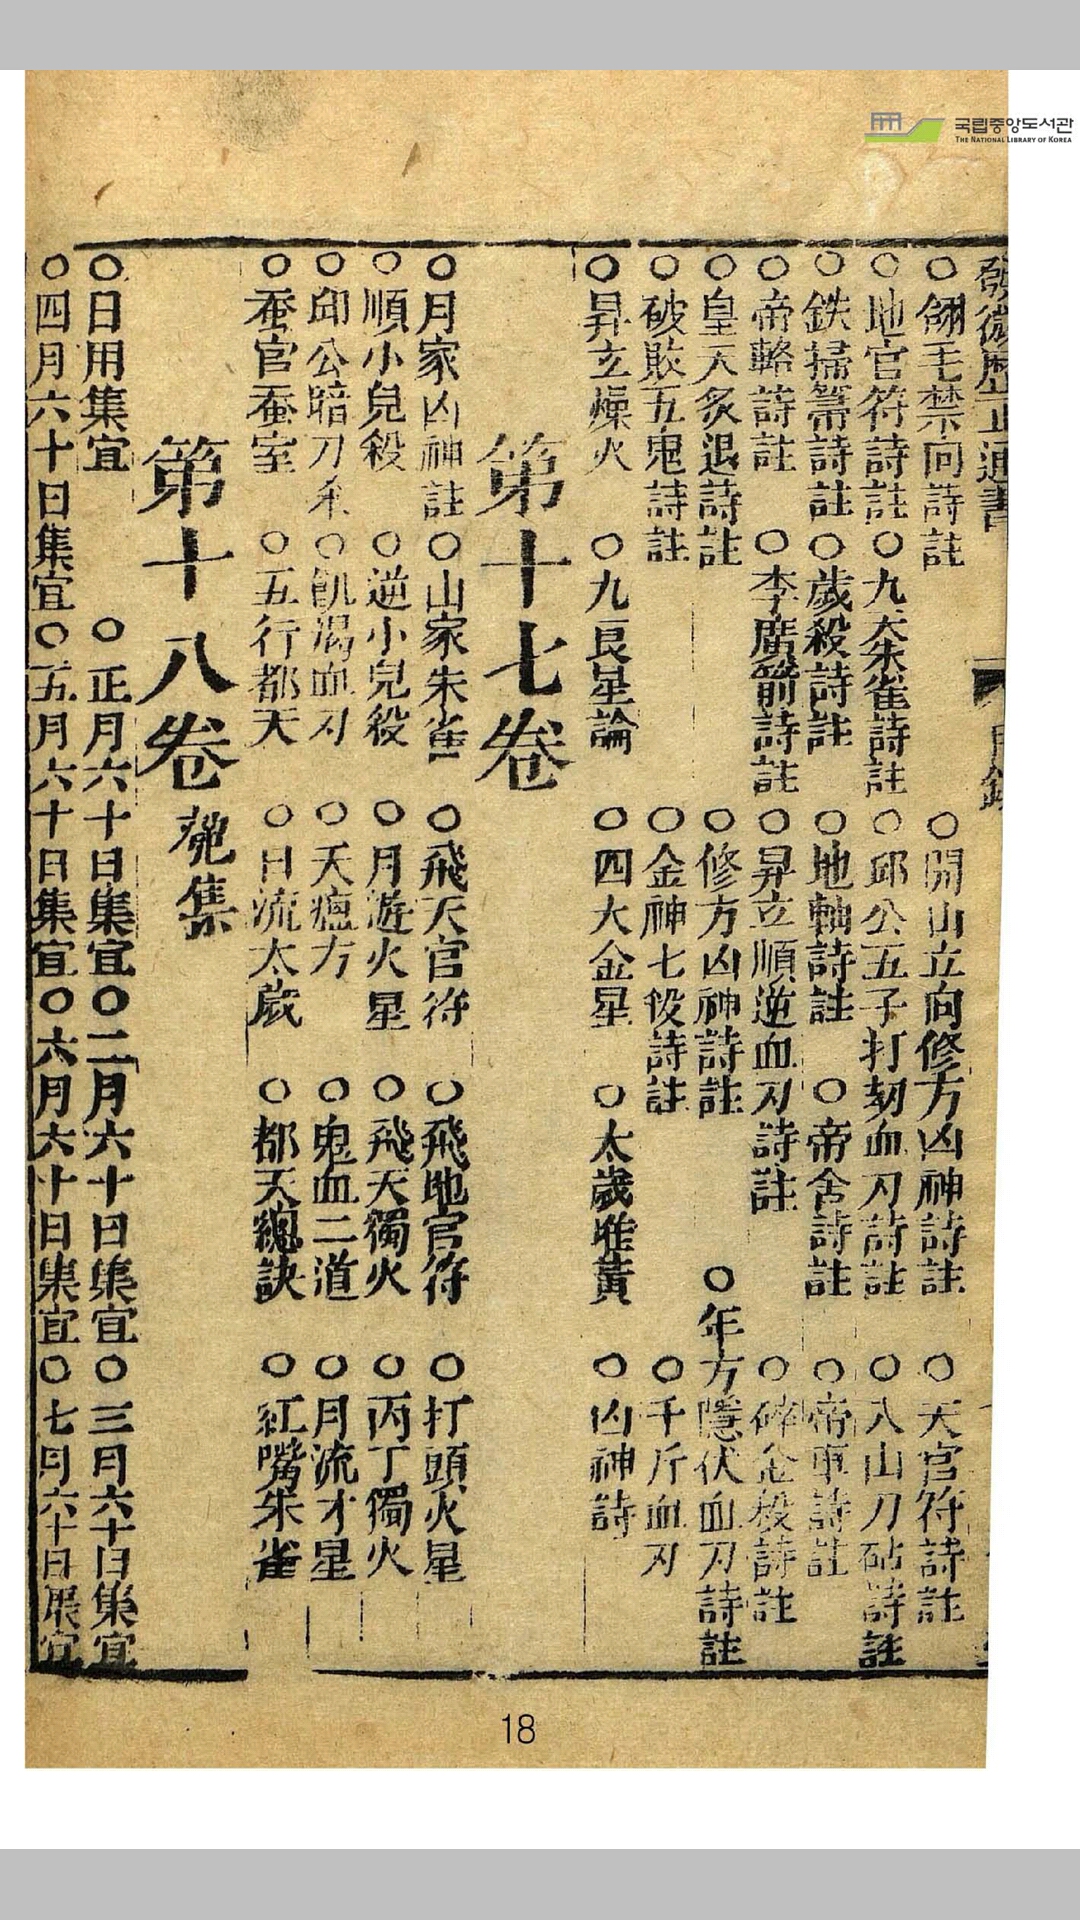 국립중앙도서관
THE NATIONAL LIBRARY OF KOREA
發微歷正通書 目錄
○翎毛禁向詩註 ○開山立向修方凶神詩註 ○天官符詩註
○地官符詩註 ○九天朱雀詩註 ○邱公五子打刼血刃詩註 ○入山刀砧詩註
○鉄掃箒詩註 ○歲殺詩註 ○地軸詩註 ○帝舍詩註 ○帝車詩註
○帝輅詩註 ○李廣箭詩註 ○昇立順逆血刃詩註 ○碎金殺詩註
○皇天炙退詩註 ○修方凶神詩註 ○年方隱伏血刃詩註
○破敗五鬼詩註 ○金神七殺詩註 ○千斤血刃
○昇玄燥火 ○九良星論 ○四大金星 ○太歲堆黃 ○凶神詩
第十七卷
○月家凶神註 ○山家朱雀 ○飛天官符 ○飛地官符 ○打頭火星
○順小兒殺 ○逆小兒殺 ○月遊火星 ○飛天獨火 ○丙丁獨火
○邱公暗刀杀 ○飢渴血刃 ○天瘟方 ○鬼血二道 ○月流才星
○蚕官蚕室 ○五行都天 ○日流太歲 ○都天緫訣 ○紅嘴朱雀
第十八卷 集
○日用集宜 ○正月六十日集宜○二月六十日集宜○三月六十日集宜
○四月六十日集宜○五月六十日集宜○六月六十日集宜○七月六十日集宜
18